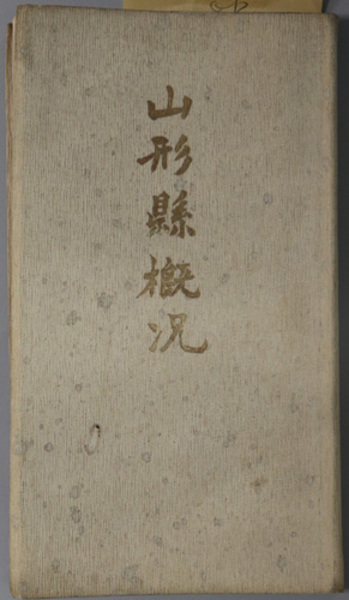 山形縣概况